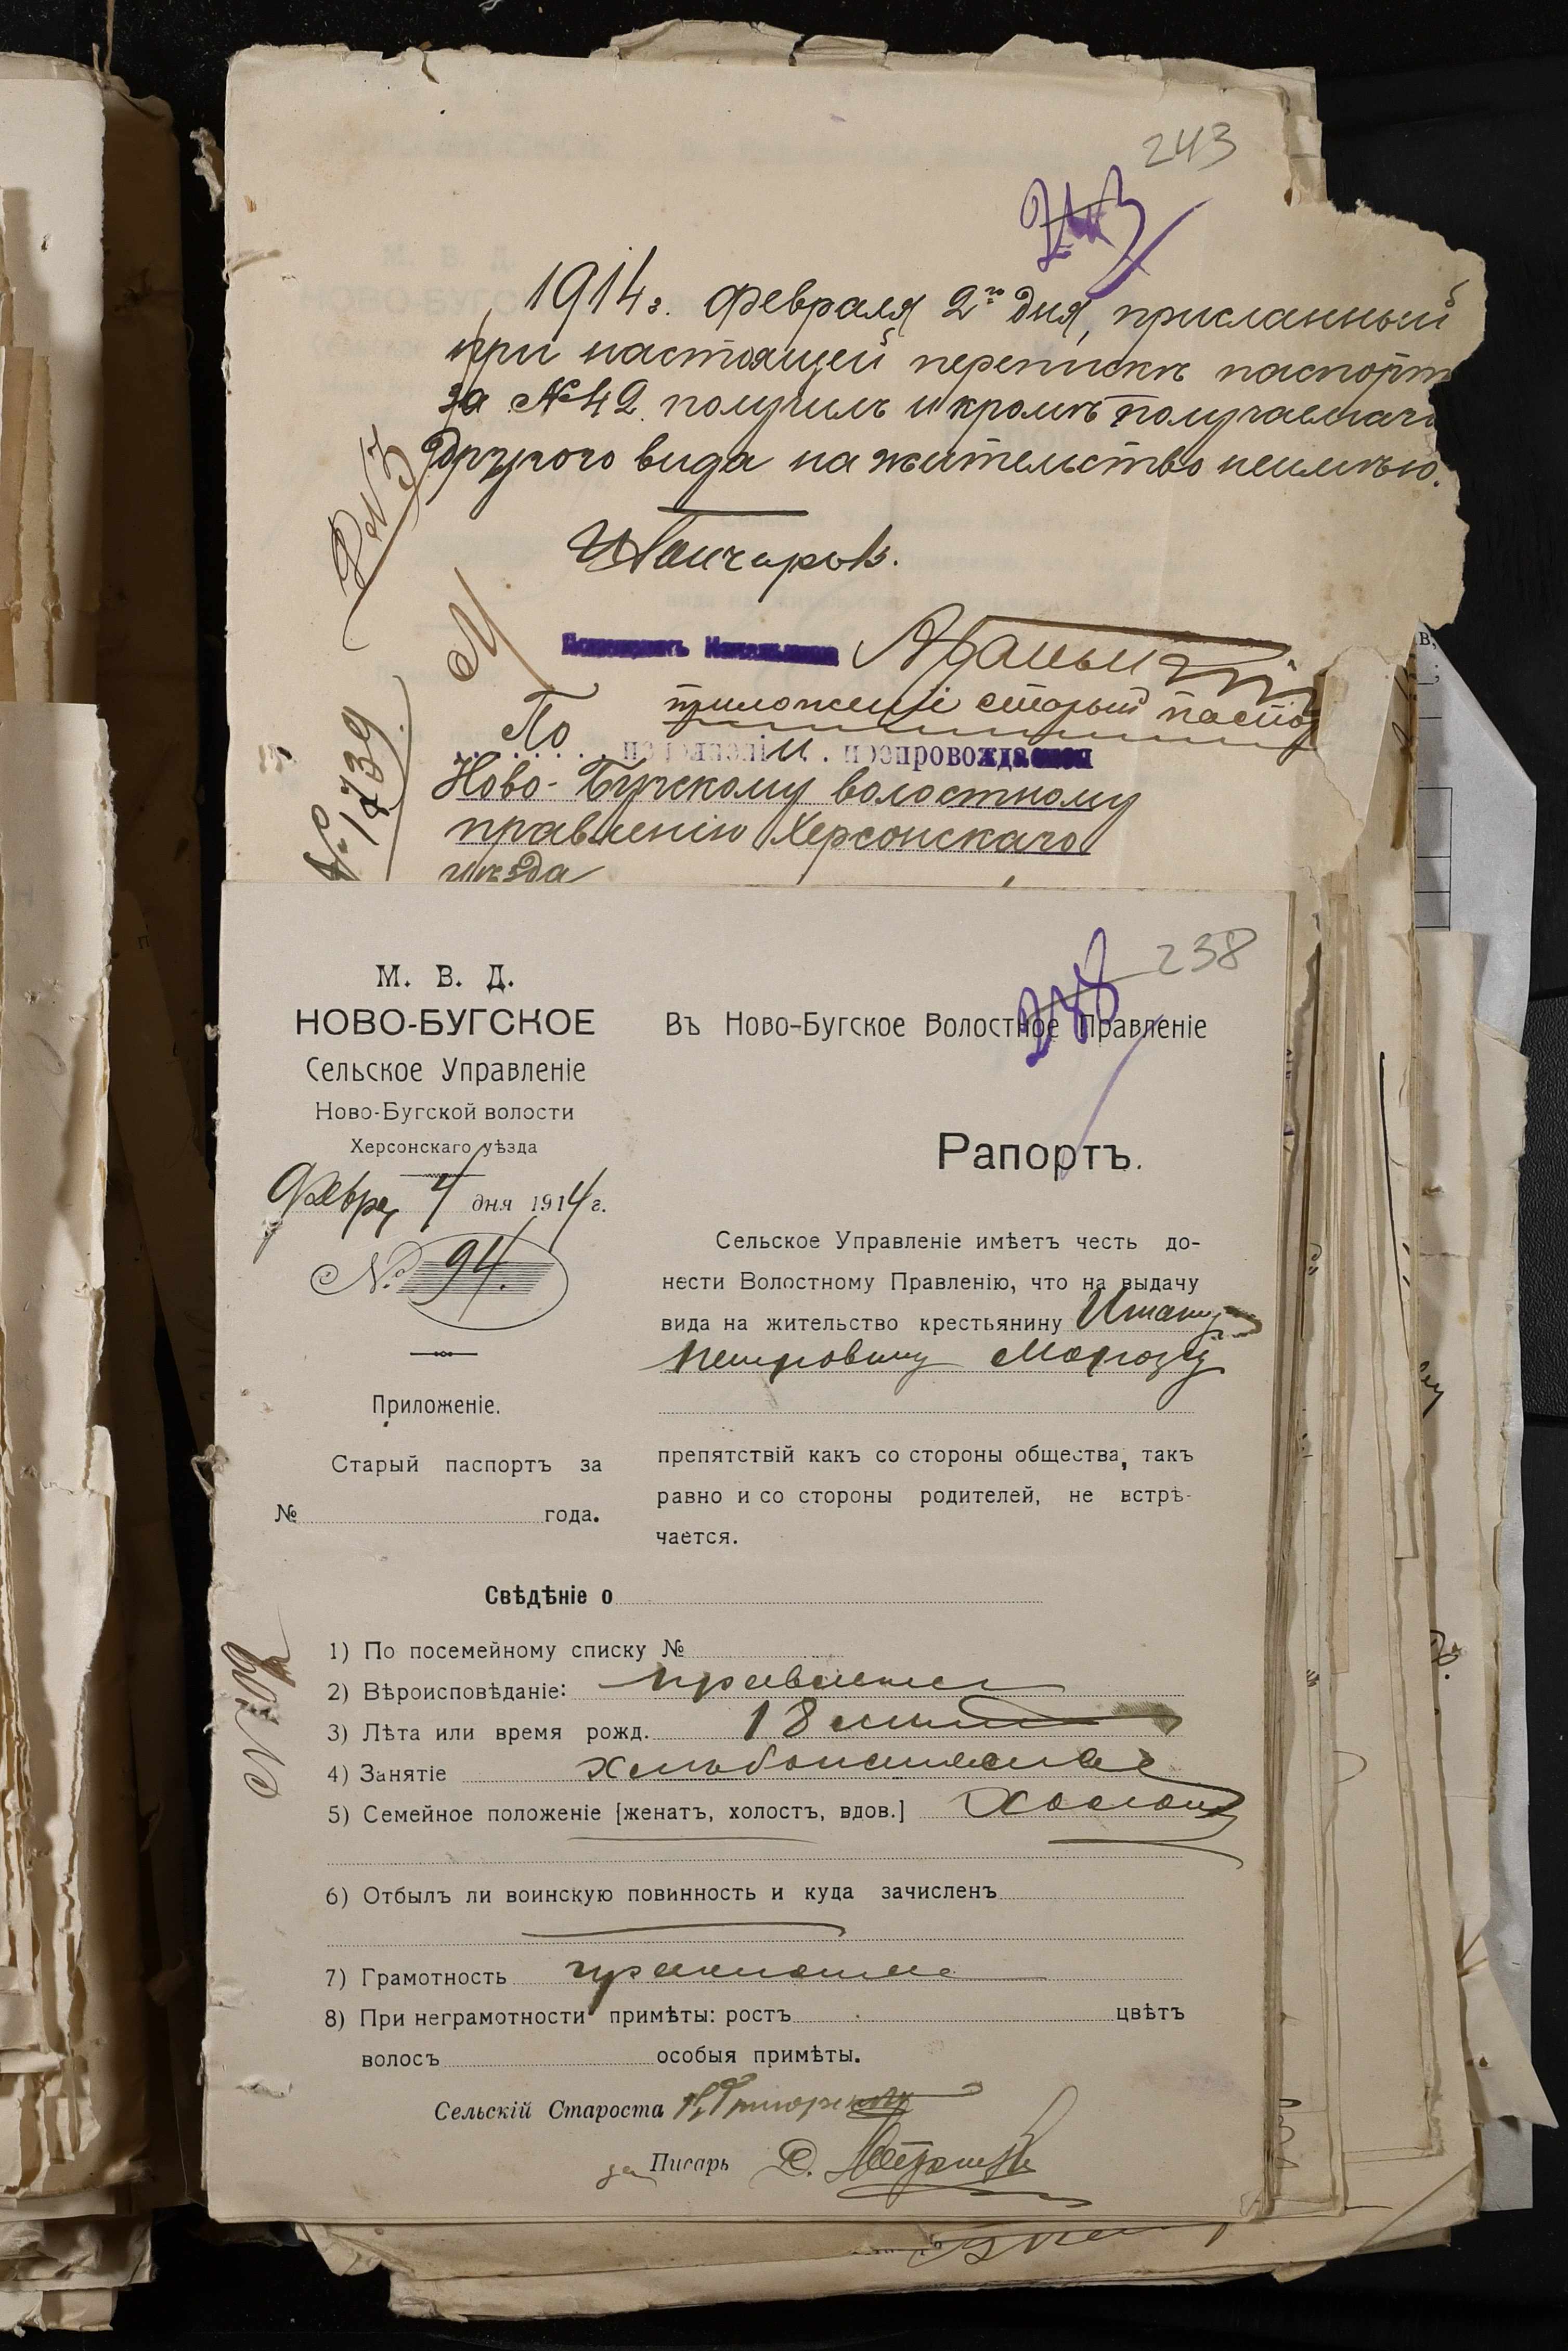 243
243
1914 г. февраля 2го дня, присланный
при настоящей перепискѣ паспортъ
за № 42 получилъ и кромѣ получаемаго
другого вида на жительство неимѣю.
По приложеніе старый паспо
исполненіи препровождается
Ново-Бугскому волостному
правленію Херсонскаго
уѣзда
№ 1739
238
238
М. В. Д.
НОВО-БУГСКОЕ
Сельское Управленіе
Ново-Бугской волости
Херсонскаго уѣзда
Февр. 4 дня 1914 г.
№ 94.
Приложеніе.
Старый паспортъ за
№ года.
Въ Ново-Бугское Волостное Правленіе
Рапортъ.
Сельское Управленіе имѣетъ честь до-
нести Волостному Правленію, что на выдачу
вида на жительство крестьянину
Петровичу Морозу
препятствій какъ со стороны общества, такъ
равно и со стороны родителей, не встрѣ-
чается.
Свѣдѣніе о
1) По посемейному списку №
2) Вѣроисповѣданіе:
3) Лѣта или время рожд. 18
4) Занятіе хлѣбопашество
5) Семейное положеніе [женатъ, холостъ, вдов.] холостъ
6) Отбылъ ли воинскую повинность и куда зачисленъ
7) Грамотность
8) При неграмотности примѣты: ростъ цвѣтъ
волосъ особыя примѣты.
Сельскій Староста
Писарь Д.